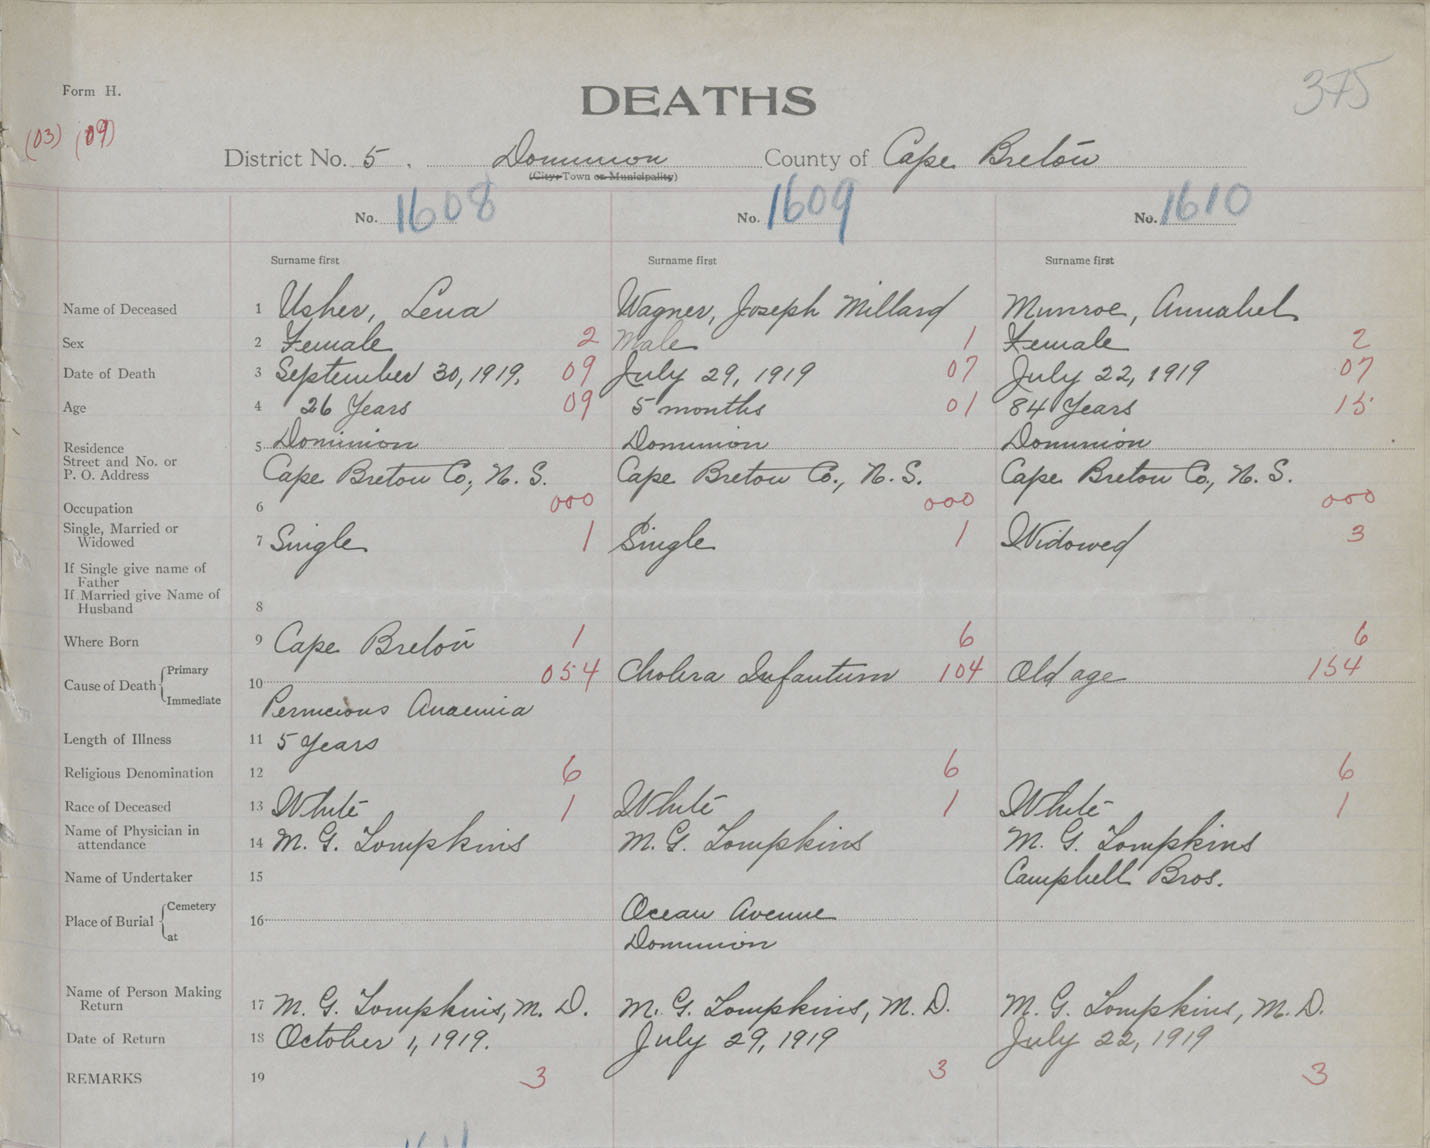 375
Form H.
DEATHS
(03) (09)
District No. 5. Dominion County of Cape Breton
(City, Town or Municipality)
No. 1608 No. 1609 No. 1610
Surname first Surname first Surname first
Name of Deceased 1 Usher, Lena Wagner, Joseph Millard Munroe, Annabel
Sex 2 Female 2 Male 1 Female 2
Date of Death 3 September 30, 1919. 09 July 29, 1919 07 July 22, 1919 07
Age 4 26 Years 09 5 months 01 84 Years 15
Residence 5 Dominion Dominion Dominion
Street and No. or
P. O. Address Cape Breton Co., N. S. Cape Breton Co., N. S. Cape Breton Co., N. S.
Occupation 6 000 000 000
Single, Married or
Widowed 7 Single 1 Single 1 Widowed 3
If Single give name of
Father
If Married give Name of
Husband 8
Where Born 9 Cape Breton 1 6 6
Cause of Death Primary 10 054 Cholera Infantum 104 Old age 154
Immediate Pernicious Anaemia
Length of Illness 11 5 Years
Religious Denomination 12 6 6 6
Race of Deceased 13 White 1 White 1 White 1
Name of Physician in
attendance 14 M. G. Tompkins M. G. Tompkins M. G. Tompkins
Name of Undertaker 15 Campbell Bros.
Place of Burial Cemetery 16 Ocean Avenue
at Dominion
Name of Person Making
Return 17 M. G. Tompkins, M. D. M. G. Tompkins, M. D. M. G. Tompkins, M. D.
Date of Return 18 October 1, 1919. July 29, 1919 July 22, 1919
REMARKS 19 3 3 3